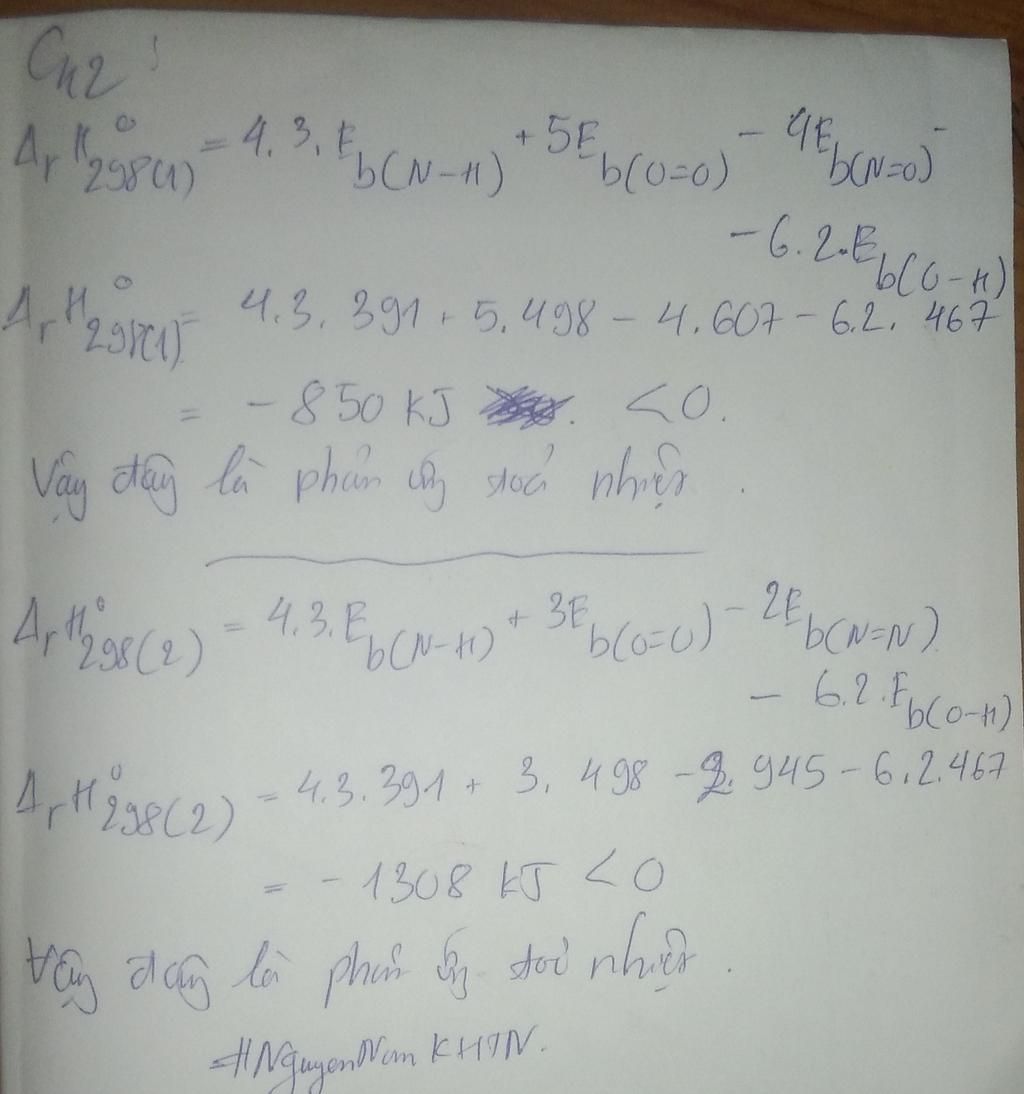 Câu 2 :
ΔrH°298(1) = 4.3.Eb(N-H) + 5Eb(O=O) - 4Eb(N=O) -
- 6.2.Eb(O-H)
ΔrH°298(1) = 4.3.391 + 5.498 - 4.607 - 6.2.467
= -850 kJ < 0.
Vậy đây là phản ứng toả nhiệt.
ΔrH°298(2) = 4.3.Eb(N-H) + 3Eb(O=O) - 2Eb(N=N)
- 6.2.Eb(O-H)
ΔrH°298(2) = 4.3.391 + 3.498 - 2.945 - 6.2.467
= -1308 kJ < 0
Vậy đây là phản ứng toả nhiệt.
#NguyenNam KHTN.